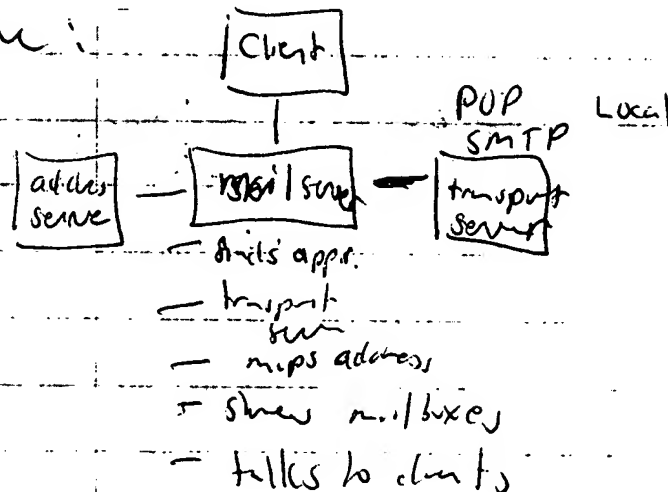 Client
POP Local
SMTP
address server
mail server
transport server
- appr.
- transport
- maps address
- stores mailboxes
- talks to clients